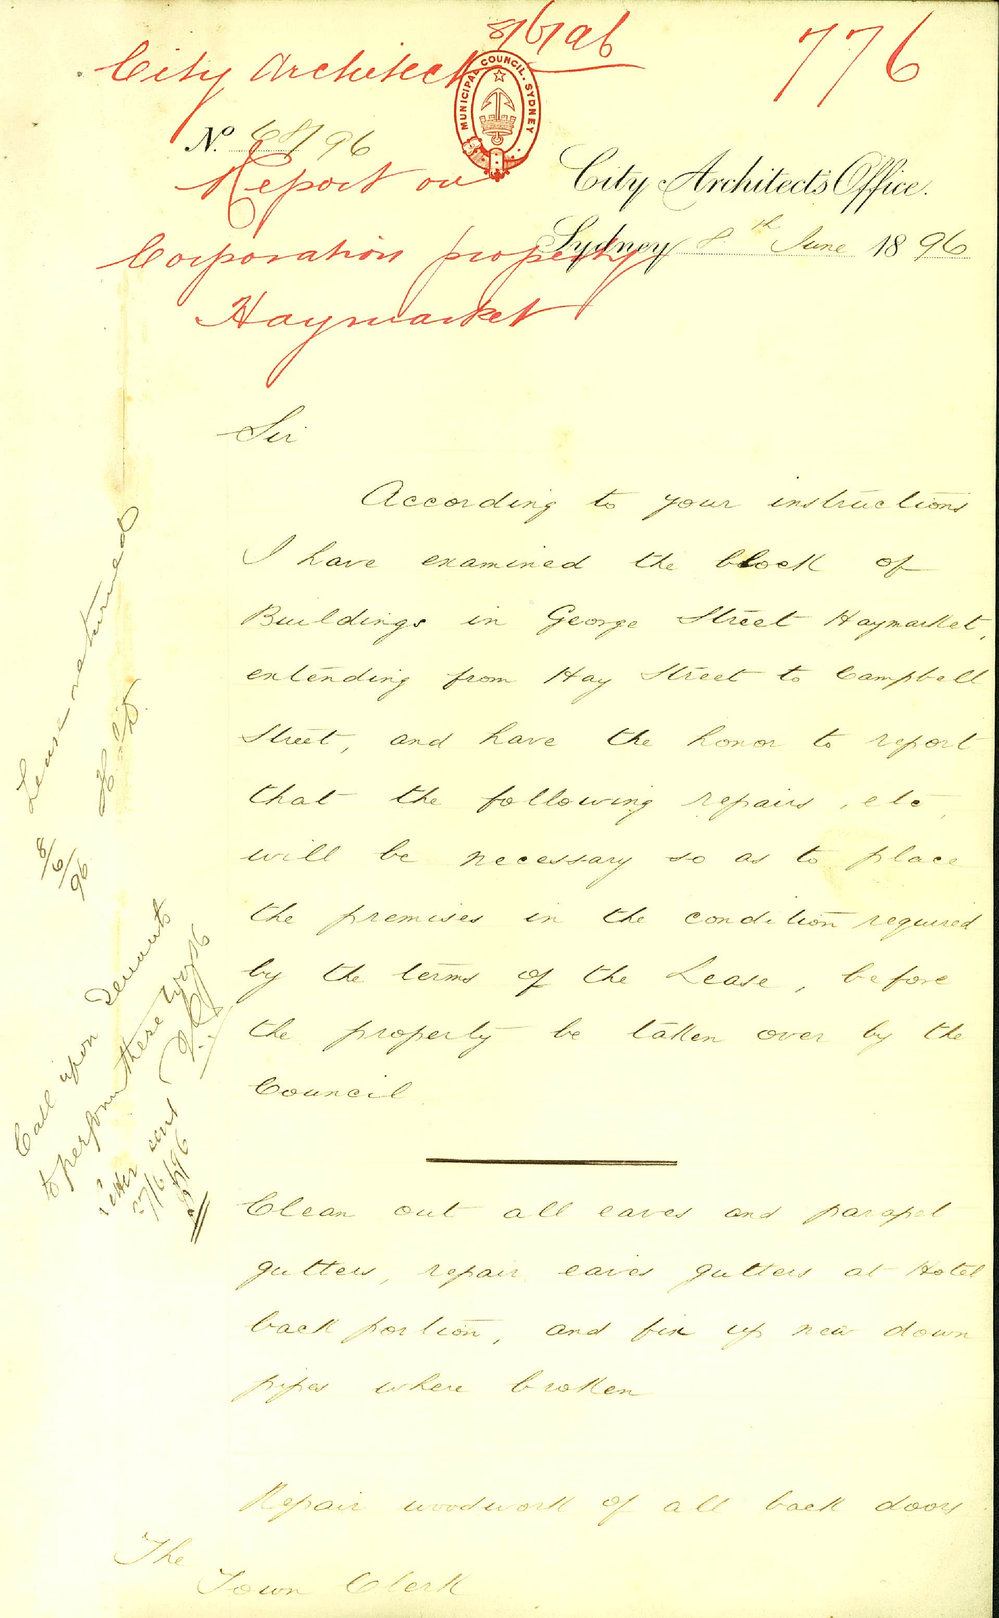 8/6/96
776
City Architect
MUNICIPAL COUNCIL. SYDNEY
No. 68/96
Report on
City Architect's Office.
Corporation property
Sydney 8th June 1896
Haymarket
Sir
According to your instructions
I have examined the block of
Buildings in George Street Haymarket,
extending from Hay Street to Campbell
Street, and have the honor to report
that the following repairs, etc,
will be necessary so as to place
the premises in the condition required
by the terms of the Lease, before
the property be taken over by the
Council
Clean out all eaves and parapet
gutters, repair eaves gutters at Hotel
back portion, and fix up new down
pipes where broken
Repair woodwork of all back doors
The
Town Clerk
Lease returned
8/6/96
Call upon Tenants
to perform these works
Letter sent